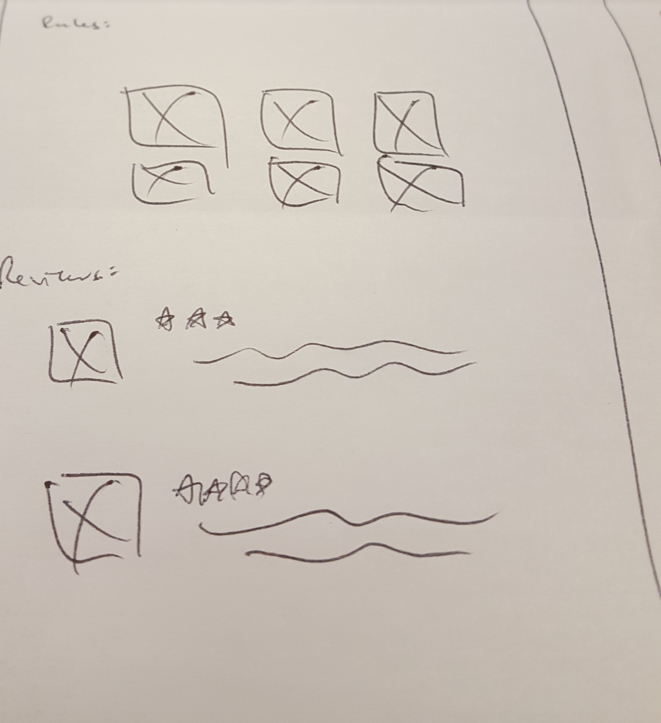 Rules:
Reviews: